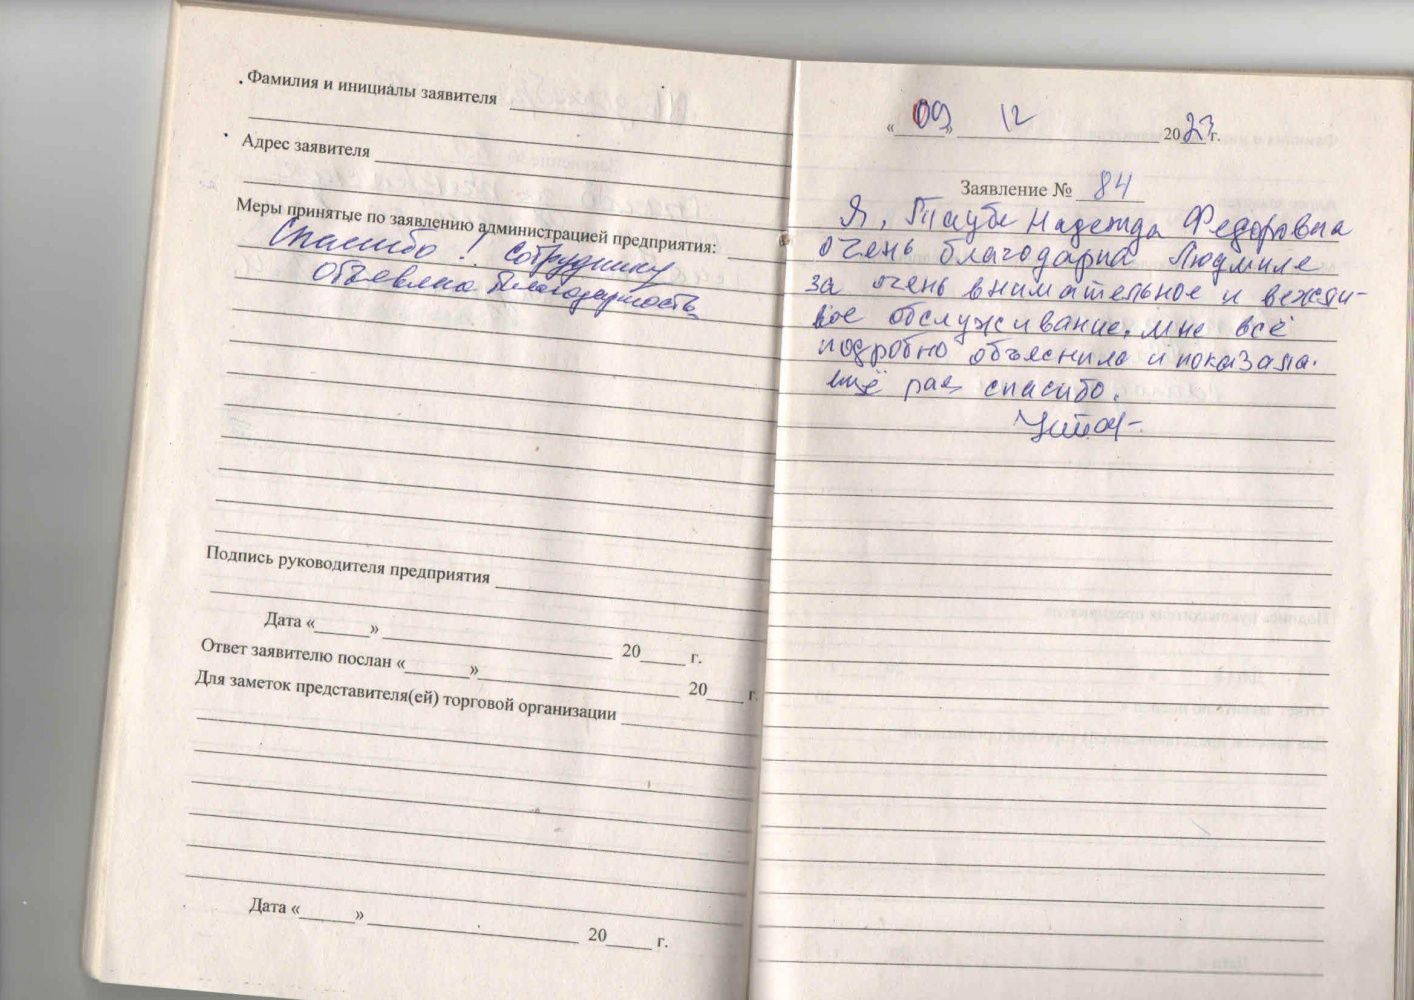 Фамилия и инициалы заявителя
Адрес заявителя
Меры принятые по заявлению администрацией предприятия:
Спасибо! Сотруднику
объявлена благодарность
Подпись руководителя предприятия
Дата «______» ______ 20____ г.
Ответ заявителю послан «______» ______ 20____ г.
Для заметок представителя(ей) торговой организации
Дата «______» ______ 20____ г.
«09» 12 2023 г.
Заявление № 84
Я, Таубе Надежда Федоровна
очень благодарна Людмиле
за очень внимательное и вежли-
вое обслуживание. мне всё
подробно объяснила и показала.
ещё раз спасибо.